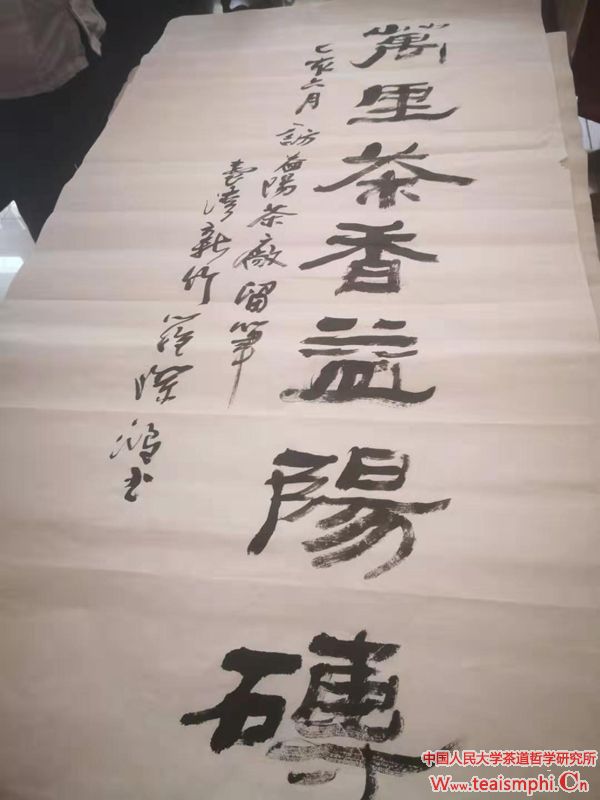 萬里茶香益陽磚
乙亥六月訪益陽茶廠留筆
臺灣新竹
中国人民大学茶道哲学研究所
Www.teaismphi.Cn